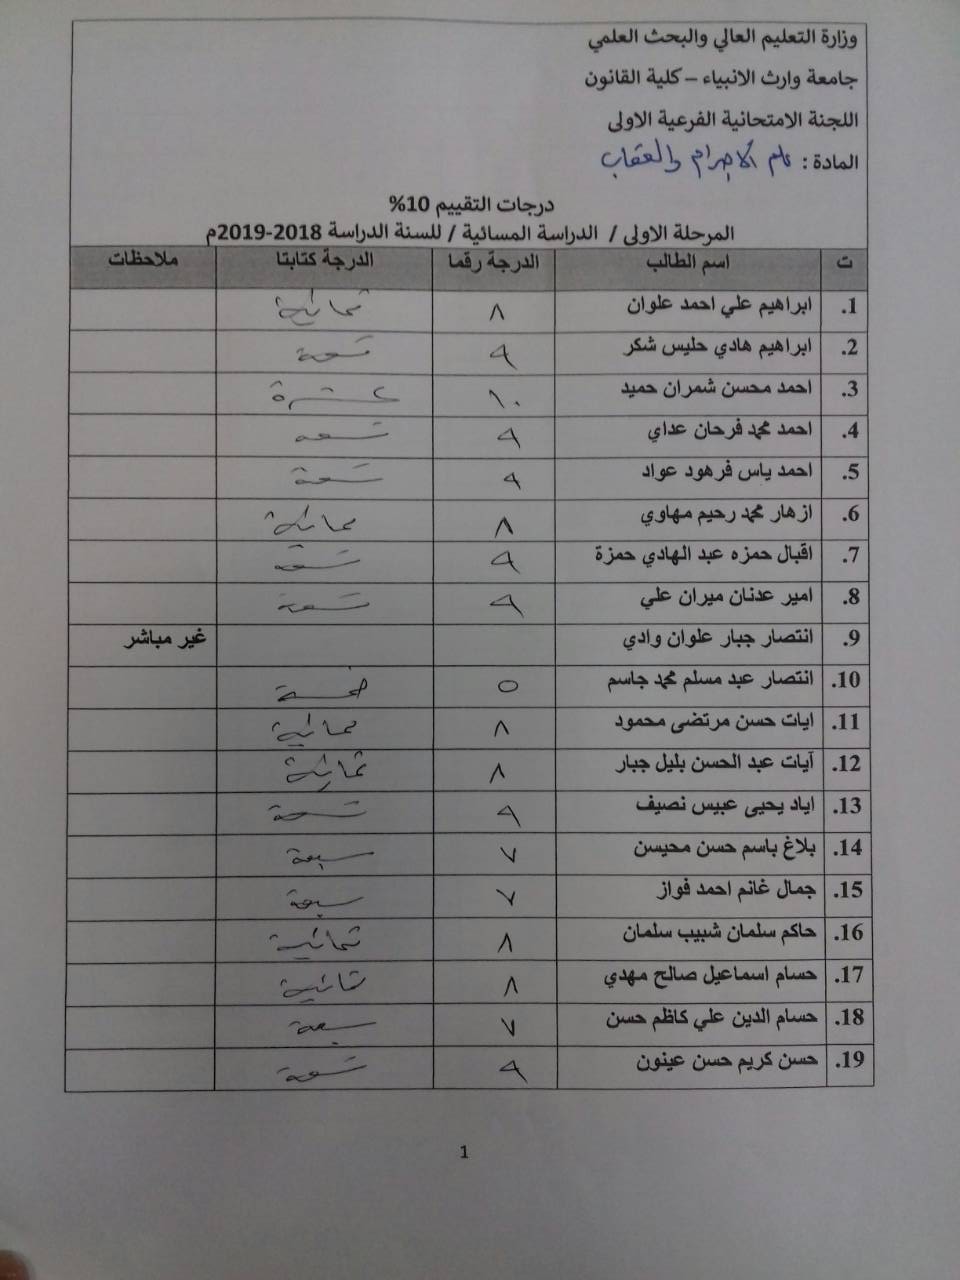 وزارة التعليم العالي والبحث العلمي
جامعة وارث الانبياء – كلية القانون
اللجنة الامتحانية الفرعية الاولى
المادة : علم الاجرام والعقاب
درجات التقييم 10%
المرحلة الاولى / الدراسة المسائية / للسنة الدراسة 2018-2019م
ت اسم الطالب الدرجة رقما الدرجة كتابتا ملاحظات
1. ابراهيم علي احمد علوان ٨ ثمانية
2. ابراهيم هادي حليس شكر ٩ تسعة
3. احمد محسن شمران حميد ١٠ عشرة
4. احمد محمد فرحان عداي ٩ تسعة
5. احمد ياس فرهود عواد ٩ تسعة
6. ازهار محمد رحيم مهاوي ٨ ثمانية
7. اقبال حمزه عبد الهادي حمزة ٩ تسعة
8. امير عدنان ميران علي ٩ تسعة
9. انتصار جبار علوان وادي غير مباشر
10. انتصار عبد مسلم محمد جاسم ٥ خمسة
11. ايات حسن مرتضى محمود ٨ ثمانية
12. آيات عبد الحسن بليل جبار ٨ ثمانية
13. اياد يحيى عبيس نصيف ٩ تسعة
14. بلاغ باسم حسن محيسن ٧ سبعة
15. جمال غانم احمد فواز ٧ سبعة
16. حاكم سلمان شبيب سلمان ٨ ثمانية
17. حسام اسماعيل صالح مهدي ٨ ثمانية
18. حسام الدين علي كاظم حسن ٧ سبعة
19. حسن كريم حسن عينون ٩ تسعة
1